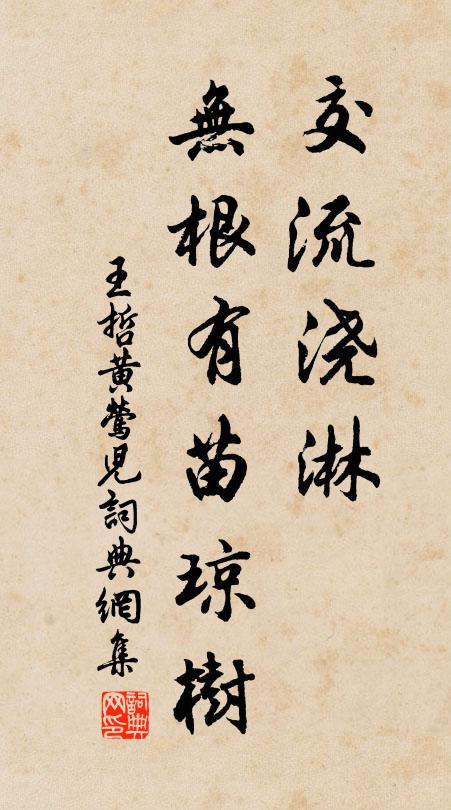 交流浇淋
無根有苗琼樹
王哲黄鶯児詞典網集
詞典网印